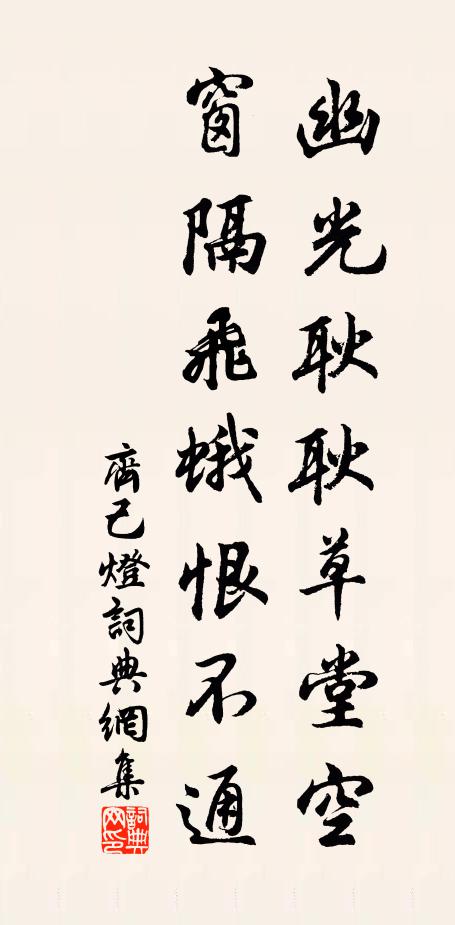 幽光耿耿草堂空
窗隔飛蛾恨不通
齊己燈詞典網集
詞典網印